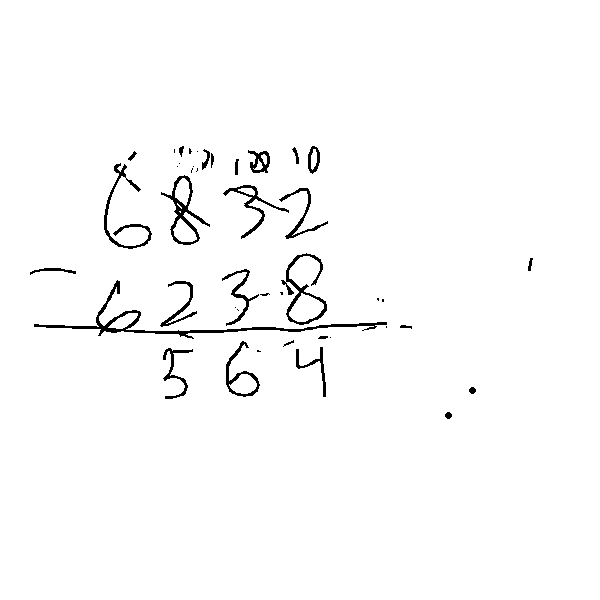 10
6832
- 6238
564